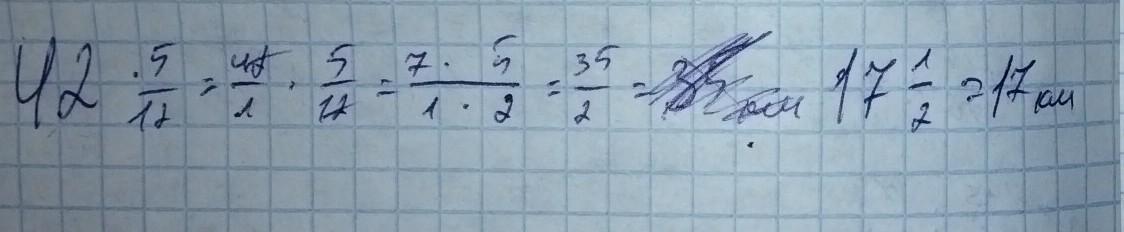 42 · 5/12 = 42/1 · 5/12 = 7 · 5/1 · 2 = 35/2 = 17 1/2 = 17 км